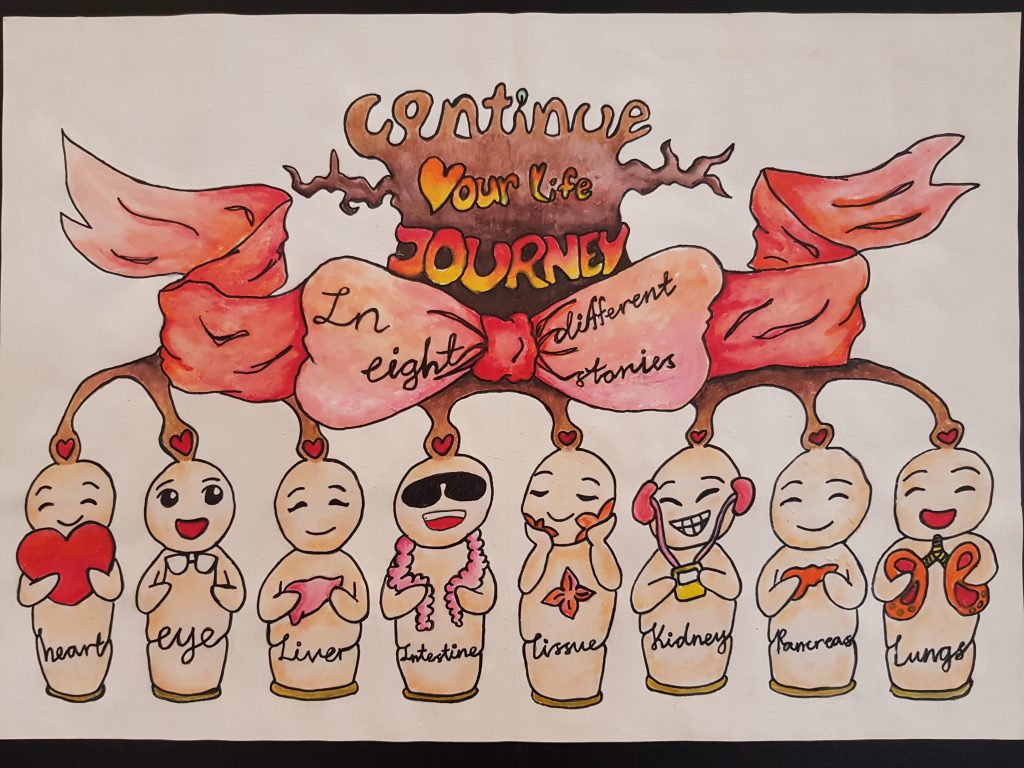 Continue
Your life
JOURNEY
In
eight
different
stories
heart
eye
Liver
Intestine
Tissue
Kidney
Pancreas
Lungs